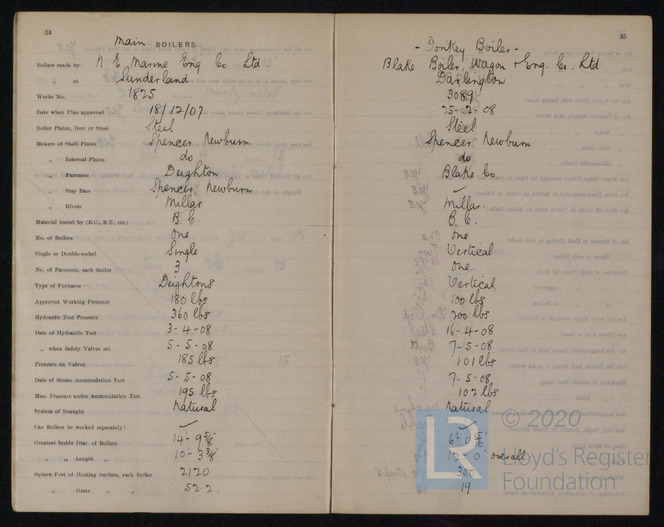 34
Main BOILERS.
Boilers made by N. E. Marine Eng. Co. Ltd
„ at Sunderland
Works No. 1825
Date when Plan approved 18/12/07
Boiler Plates, Iron or Steel Steel
Makers of Shell Plates Spencer Newburn
„ Internal Plates do
„ Furnaces Deighton
„ Stay Bars Spencer Newburn
„ Rivets Millar
Material tested by (B.C., B.T., etc.) B. C.
No. of Boilers One
Single or Double-ended Single
No. of Furnaces, each Boiler 3
Type of Furnaces Deightons
Approved Working Pressure 180 lbs
Hydraulic Test Pressure 360 lbs
Date of Hydraulic Test 3-4-08
„ when Safety Valves set 5-5-08
Pressure on Valves 185 lbs
Date of Steam Accumulation Test 5-5-08
Max. Pressure under Accumulation Test 195 lbs
System of Draught Natural
Can Boilers be worked separately? ✓
Greatest Inside Diar. of Boilers 14-9⅝"
„ „ Length „ 10-3⅜"
Square Feet of Heating Surface, each Boiler 2120
„ Grate „ „ 52 2.
35
- Donkey Boiler -
Blake Boiler, Wagon & Eng. Co. Ltd
Darlington
3089
25-2-08
Steel
Spencer Newburn
do
Blake Co.
✓
Millar.
B. C.
One
Vertical
One.
Vertical
100 lbs
200 lbs
16-4-08
7-5-08
101 lbs
7-5-08
102 lbs
Natural
✓
12-0" overall
300
19
© 2020
LR
Lloyd's Register
Foundation